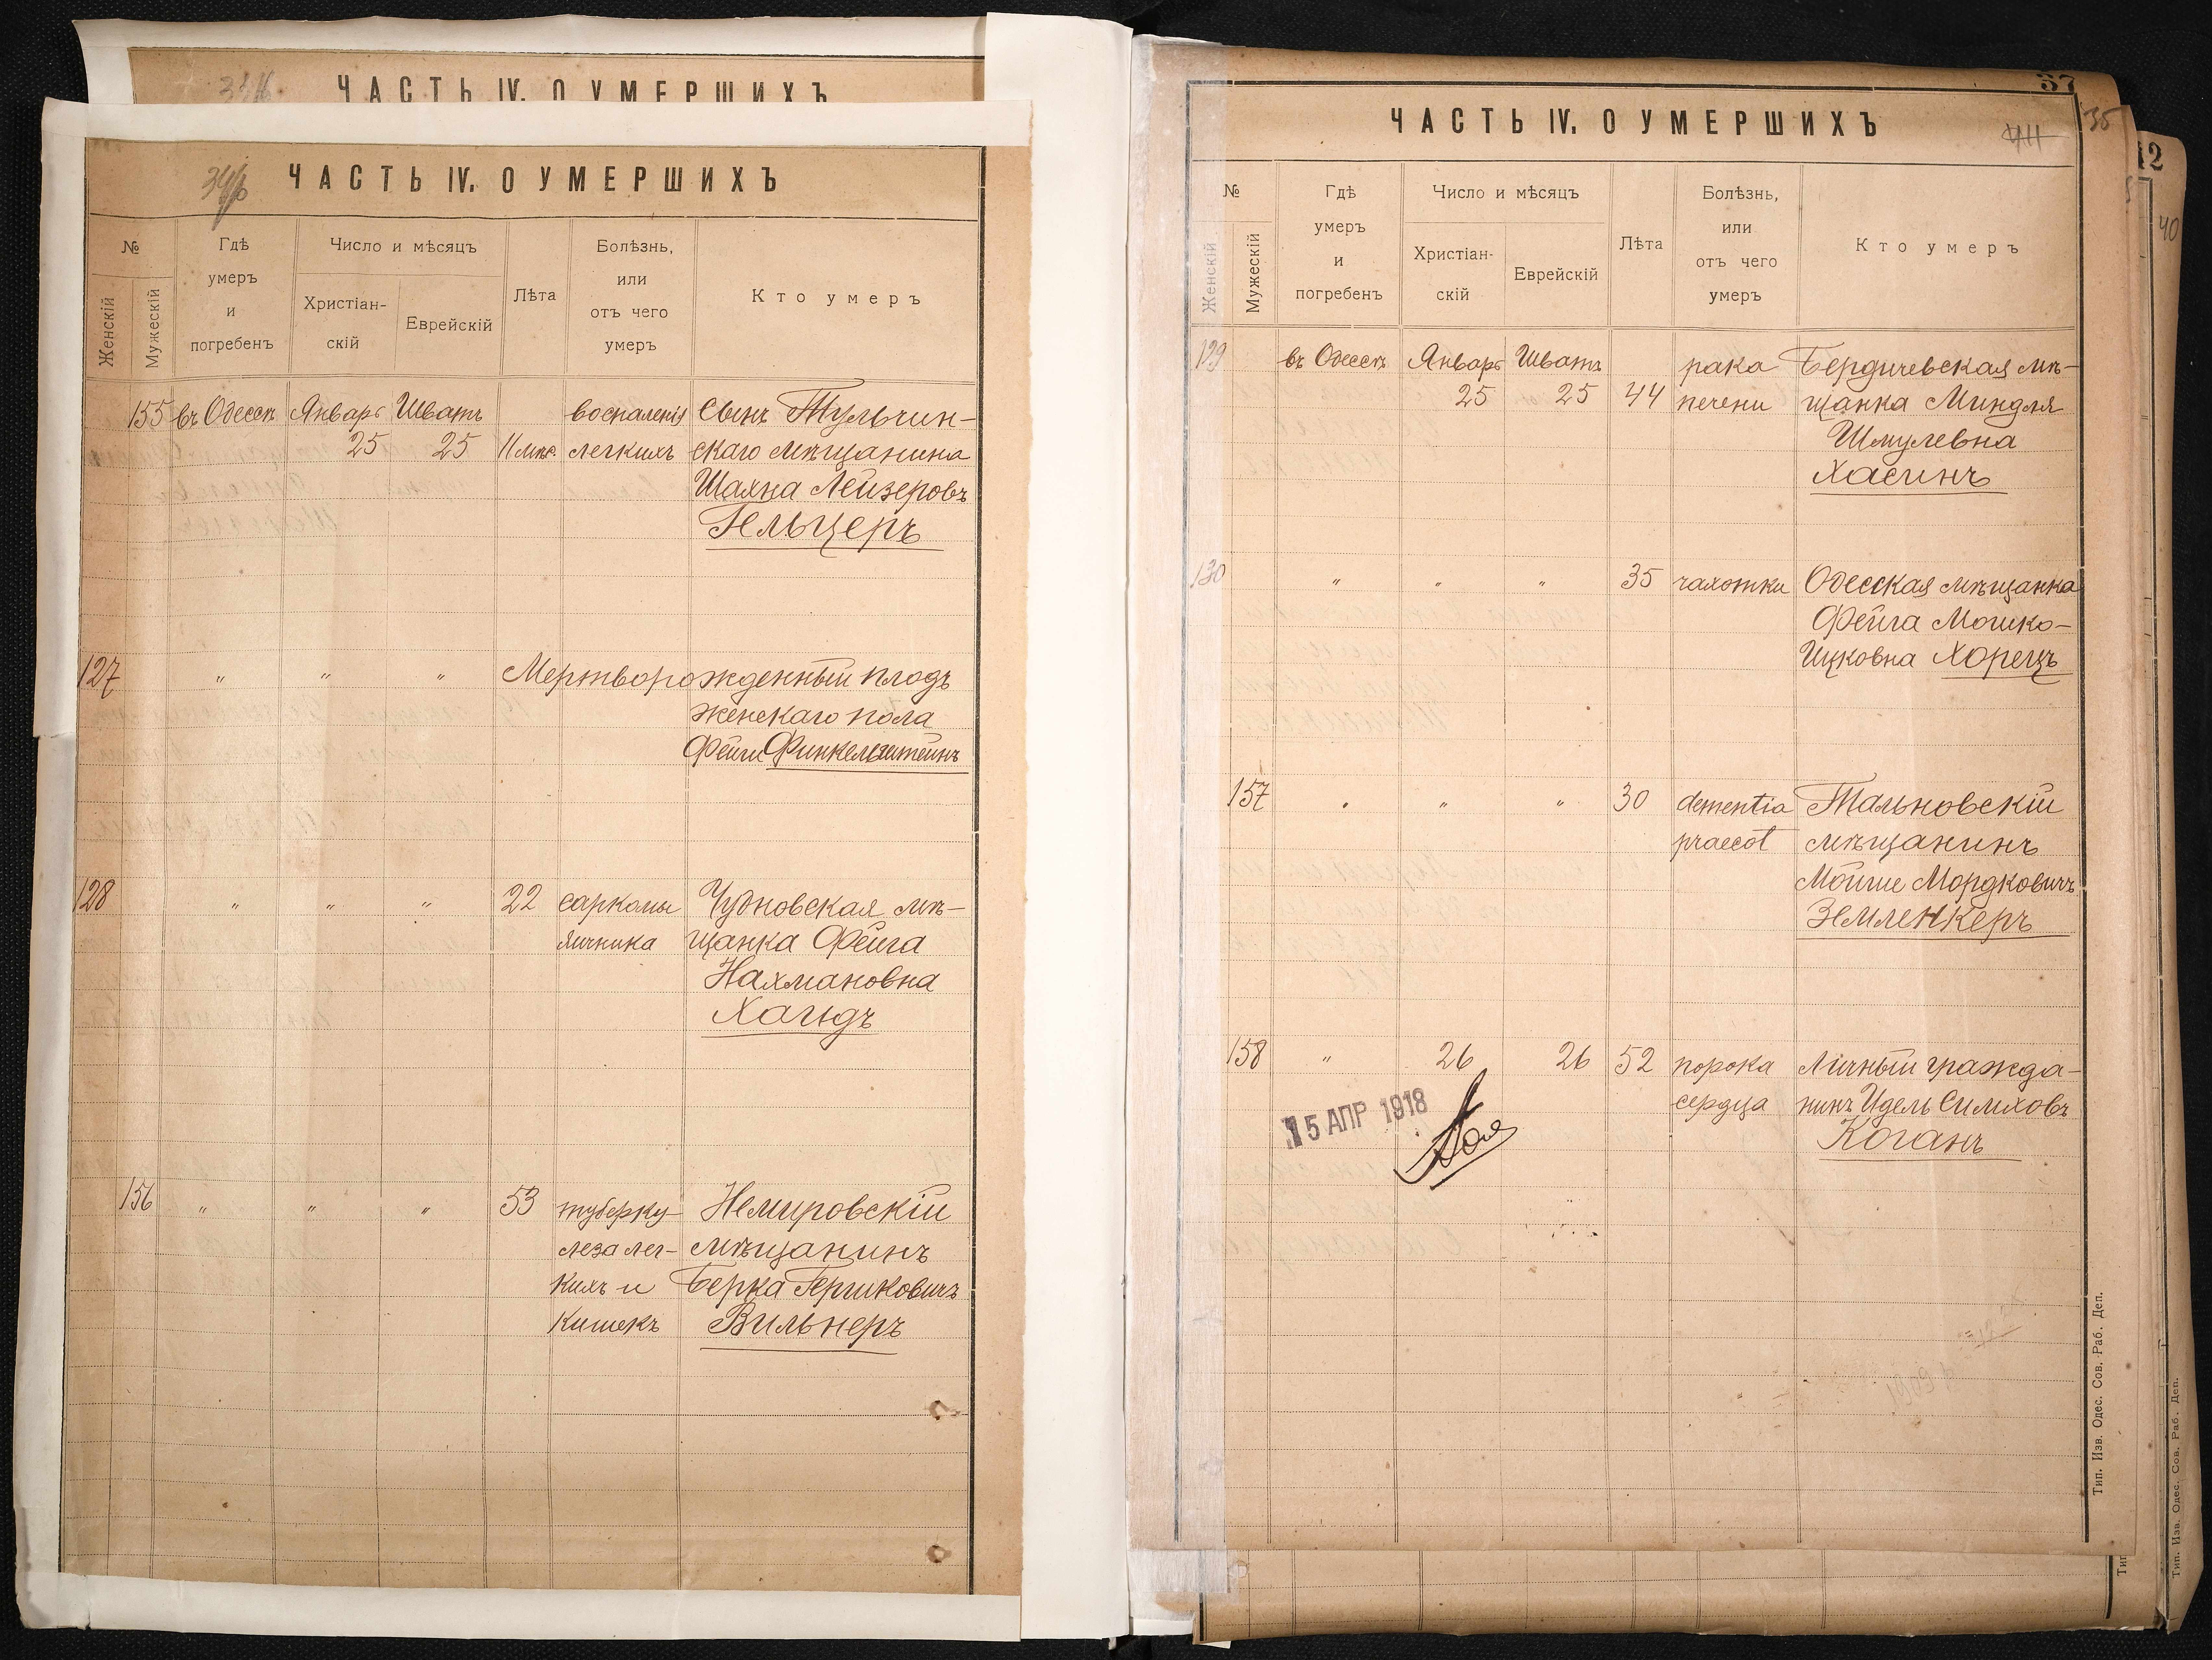 ЧАСТЬ IV. О УМЕРШИХЪ
34б
ЧАСТЬ IV. О УМЕРШИХЪ
№
Женскій
Мужескій
Гдѣ
умеръ
и
погребенъ
Число и мѣсяцъ
Христіан-
скій
Еврейскій
Лѣта
Болѣзнь,
или
отъ чего
умеръ
Кто умеръ
155 въ Одессѣ Январь Шватъ воспаленія Сынъ Тульчин-
25 25 11 мѣс. легкихъ скаго мѣщанина
Шахна Лейзеровъ
Гельцеръ
127 " " " Мертворожденный плодъ
женскаго пола
Фейги Финкельштейнъ
128 " " " 22 саркомы Чудновская мѣ-
яичника щанка Фейга
Нахмановна
Хаюдъ
156 " " " 53 туберку- Немировскій
леза лег- мѣщанинъ
кихъ и Берка Гершковичъ
кишекъ Вильнеръ
37
35
ЧАСТЬ IV. О УМЕРШИХЪ
№
Женскій
Мужескій
Гдѣ
умеръ
и
погребенъ
Число и мѣсяцъ
Христіан-
скій
Еврейскій
Лѣта
Болѣзнь,
или
отъ чего
умеръ
Кто умеръ
129 въ Одессѣ Январь Шватъ рака Бердичевская мѣ-
25 25 44 печени щанка Миндля
Шмулевна
Хасинъ
130 " " " 35 чахотки Одесская мѣщанка
Фейга Мошко-
Ицковна Хорецъ
157 " " " 30 dementia Тальновскій
praecot мѣщанинъ
Мойше Мордковичъ
Земленкеръ
158 " 26 26 52 порока Личный гражда-
сердца нинъ Идель Симховъ
Коганъ
15 АПР 1918
Тип. Изв. Одес. Сов. Раб. Деп.
12
40
Тип. Изв. Одес. Сов. Раб. Деп.